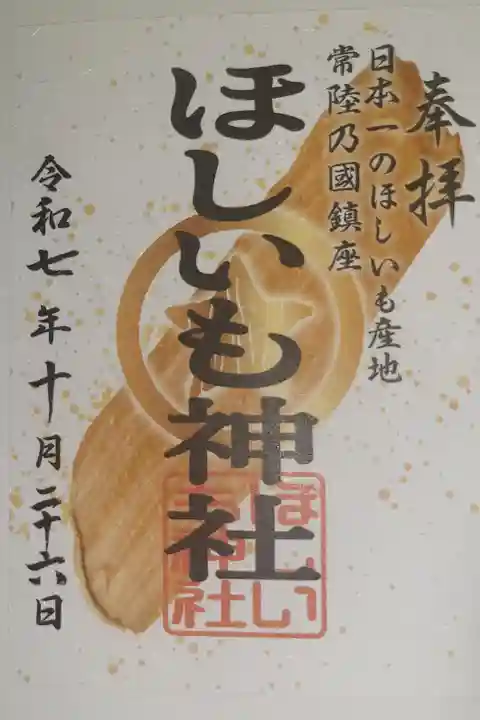 奉拝
日本一のほしいも産地
常陸乃國鎮座
ほしいも神社
令和七年十月二十六日
ほしい
も神社